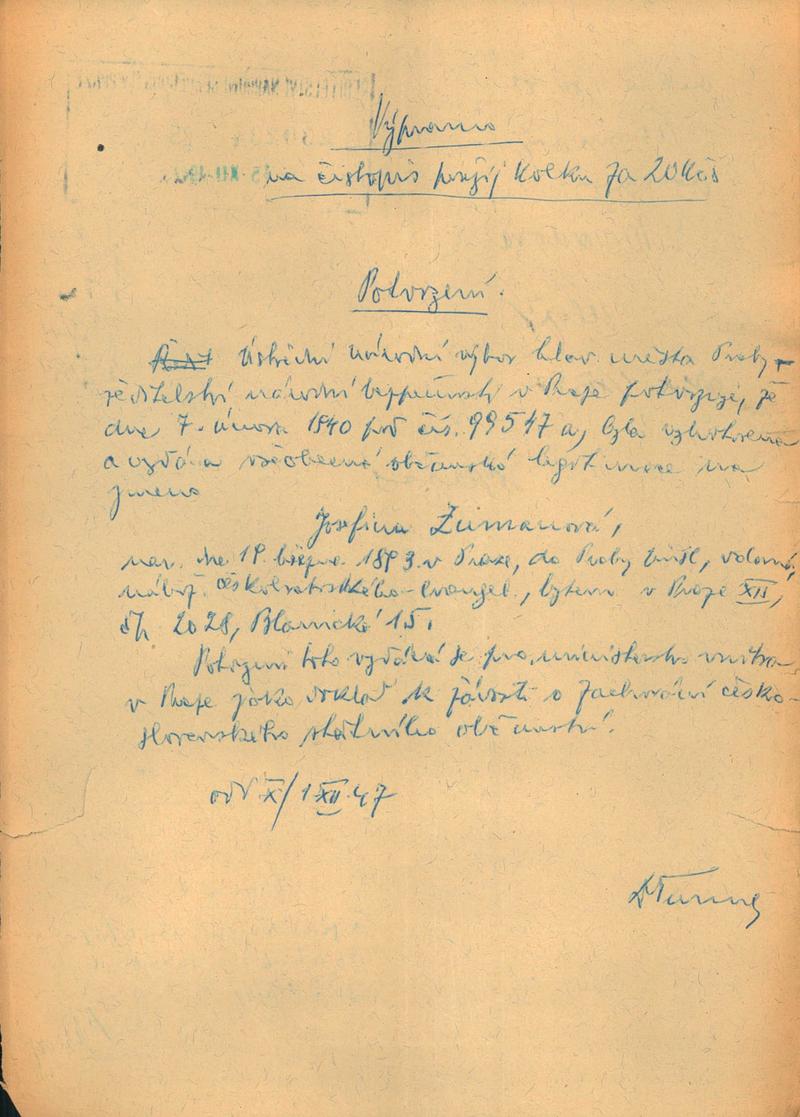 Výprava
na čistopis použij kolku za 20 Kčs
Potvrzení.
Ústřední národní výbor hlav. města Prahy -
ředitelství národní bezpečnosti v Praze potvrzuje, že
dne 7. února 1940 pod čís. 99517 a, byla vyhotovena
a vydána všeobecná občanská legitimace na
jméno
Josefina Zumanová,
nar. dne 19. března 1893 v Praze, do Prahy přísl.,
nábož. českobratrského-evangel., bytem v Praze XII,
čp. 2028, Blanická 15.
Potvrzení toto vydává se pro ministerstvo vnitra
v Praze jako doklad k žádosti o zachování česko-
slovenského státního občanství.
odd X/1 XII 47